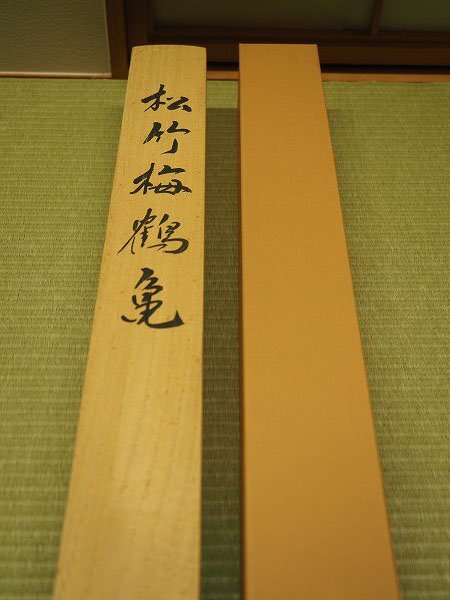 松竹梅鶴亀